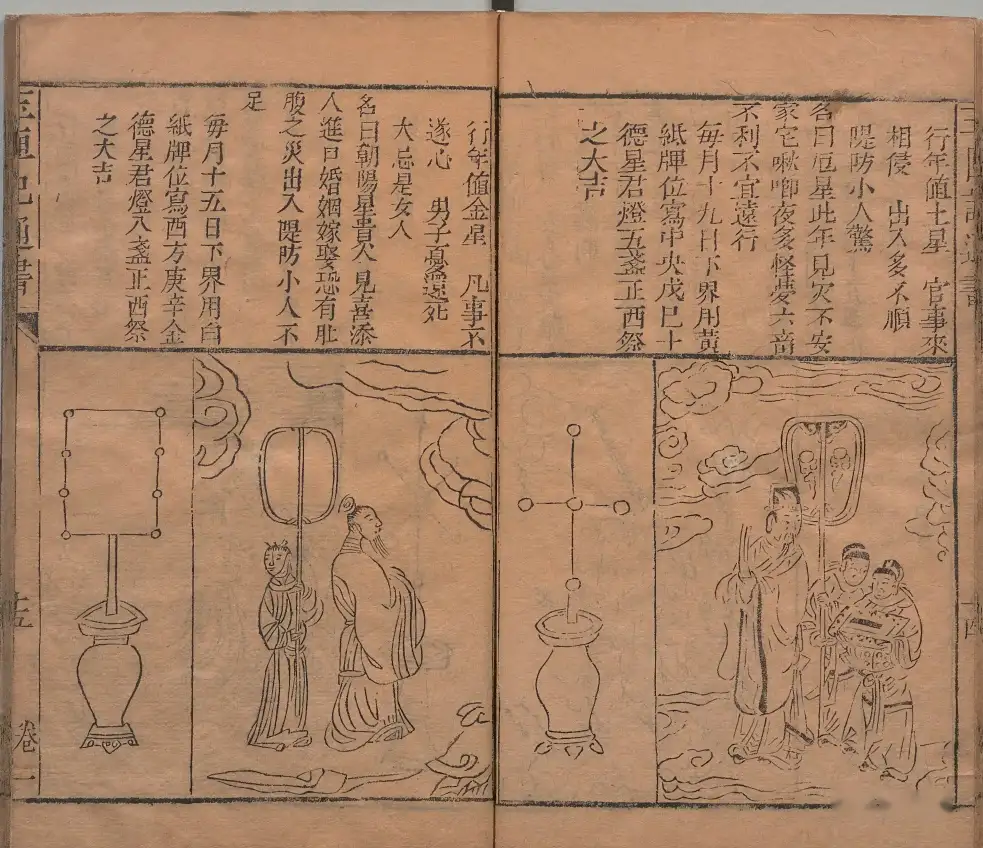 行年值土星　官事來
相侵　出入多不順
隄防小人驚
名曰厄星此年見災不安
家宅啾唧夜多怪夢六畜
不利不宜遠行
每月十九日下界用黃
紙牌位寫中央戊巳土
德星君燈五盞正西祭
之大吉
行年值金星　凡事不
遂心　男子憂遠死
大忌是女人
名曰朝陽星貴人見喜添
人進口婚姻嫁娶恐有肚
腹之災出入隄防小人不
足
每月十五日下界用白
紙牌位寫西方庚辛金
德星君燈八盞正西祭
之大吉
玉匣記通書
卷一